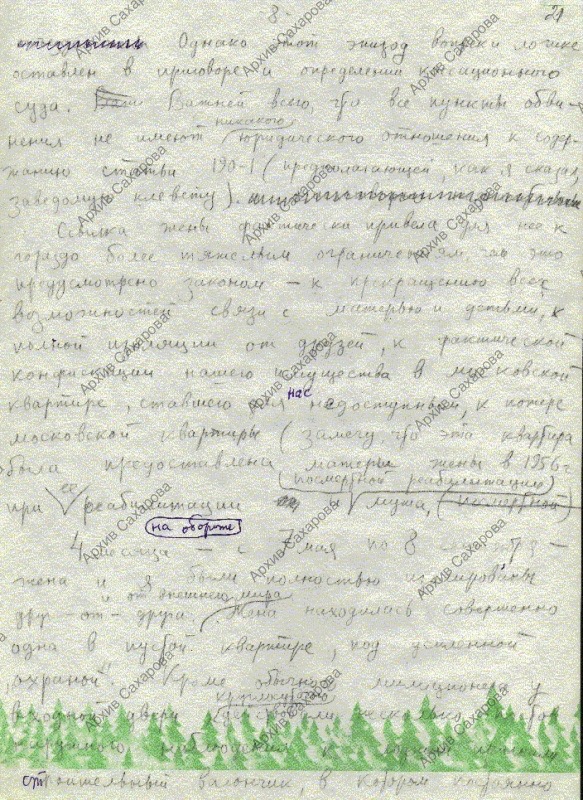 8.
21
Однако этот эпизод вопреки логике
оставлен в приговоре и определении кассационного
суда. Важней всего, что все пункты обви-
никакого
нения не имеют юридического отношения к содер-
жанию статьи 190-1 (предполагающей, как я сказал,
заведомую клевету).
Ссылка жены фактически привела для нее к
гораздо более тяжелым ограничениям, чем это
предусмотрено законом — к прекращению всех
возможностей связи с матерью и детьми, к
полной изоляции от друзей, к фактической
конфискации нашего имущества в московской
нас
квартире, ставшего для недоступным, к потере
московской квартиры (замечу, что эта квартира
была предоставлена матери жены в 1956 г.
(посмертной реабилитацией)
при ее реабилитации и мужа, (посмертной
на обороте
4 месяца — с 7 мая по 8 сентября —
жена и я были полностью изолированы
и от внешнего мира
друг-от-друга. Жена находилась совершенно
одна в пустой квартире, под усиленной
„охраной". Кроме обычного милиционера у
круглосуточно
входной двери
наблюдения к
строительный вагончик, в котором постоянно
Архив Сахарова